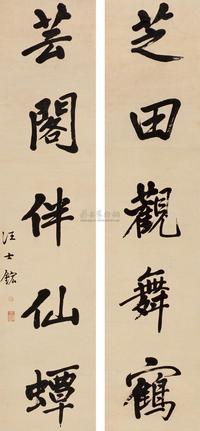 芝田觀舞鶴
芸閣伴仙蟫
汪士鋐